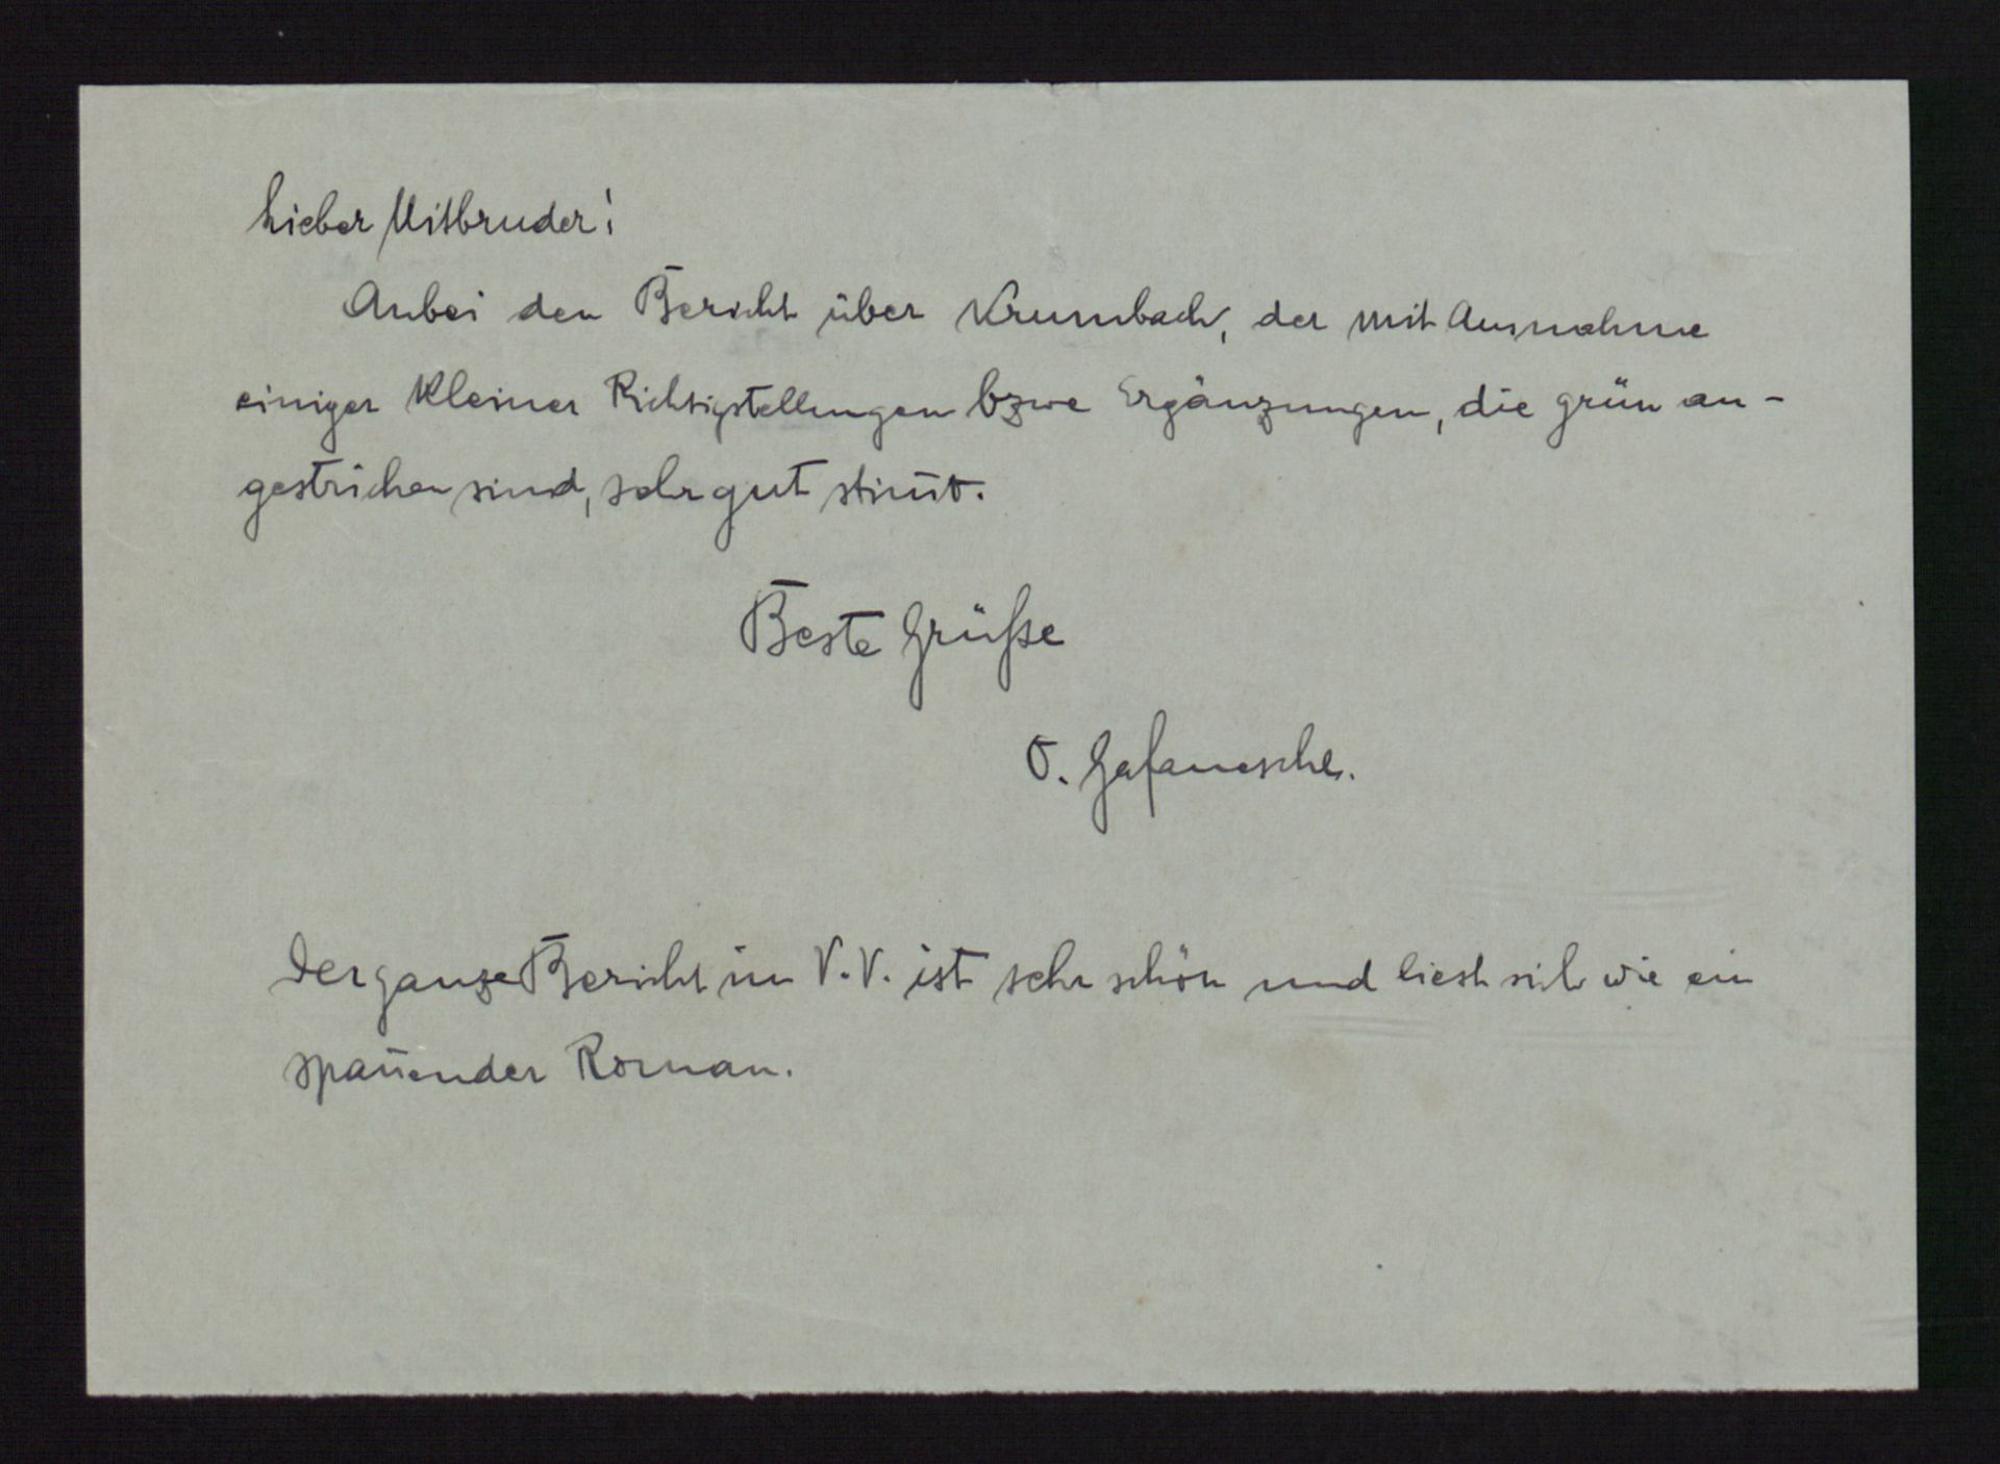 Lieber Mitbruder!
Anbei den Bericht über Krumbach, der mit Ausnahme
einiger kleiner Richtigstellungen bzwe Ergänzungen, die grün an-
gestrichen sind, sehr gut stim̄t.
Beste Grüße
O.
Der ganze Bericht im V.V. ist sehr schön und liest sich wie ein
span̄ender Roman.